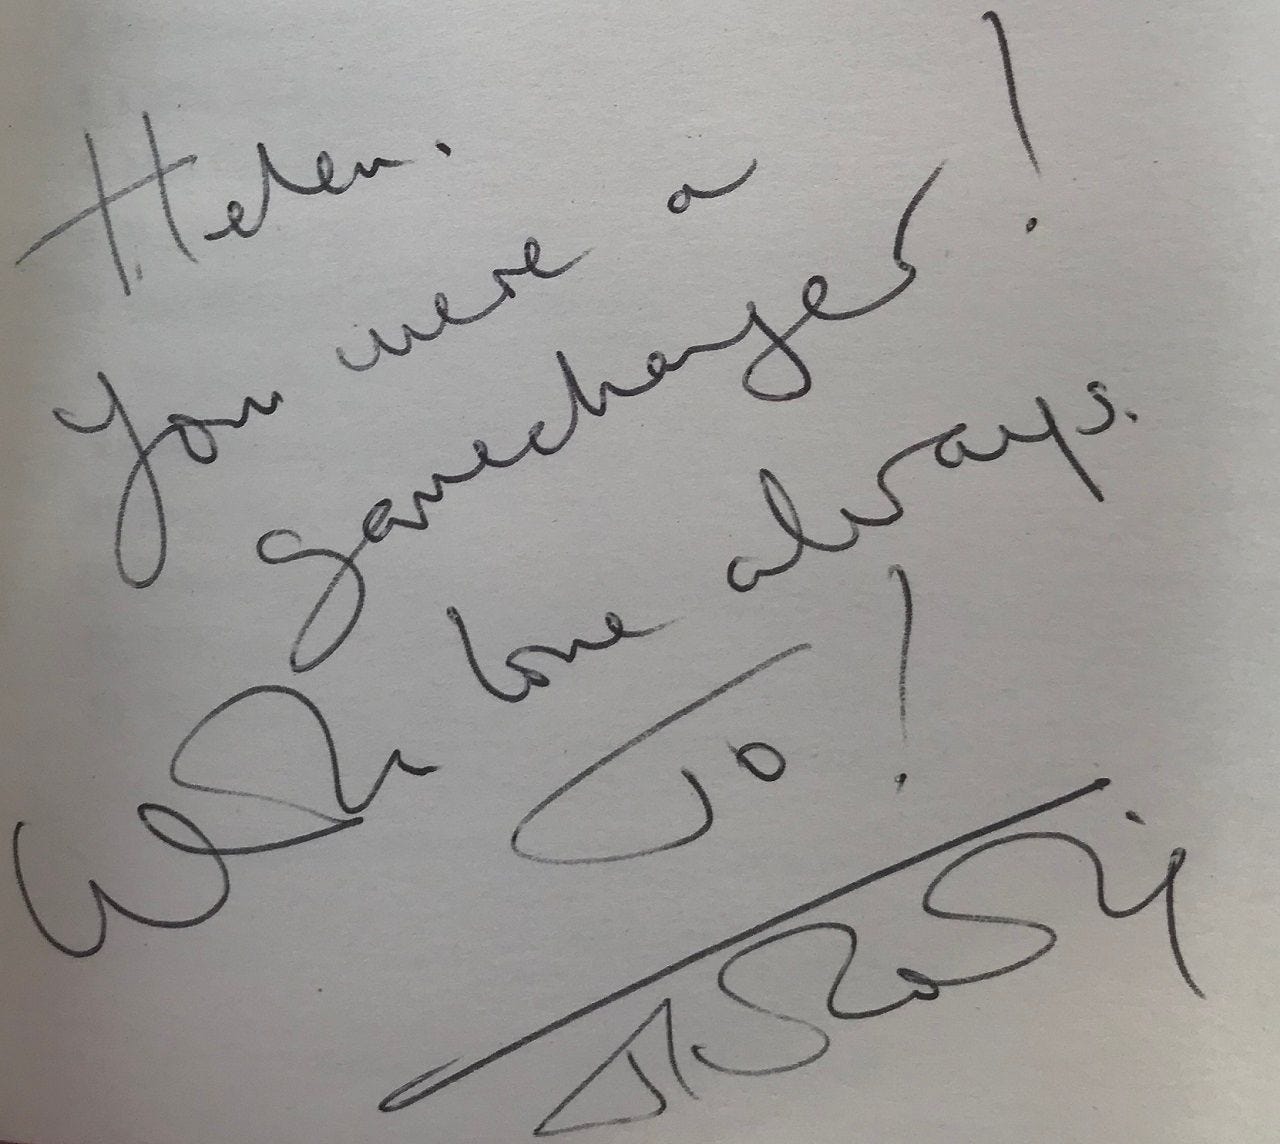 Helen.
You were a
gamechanger!
With love always.
Jo!